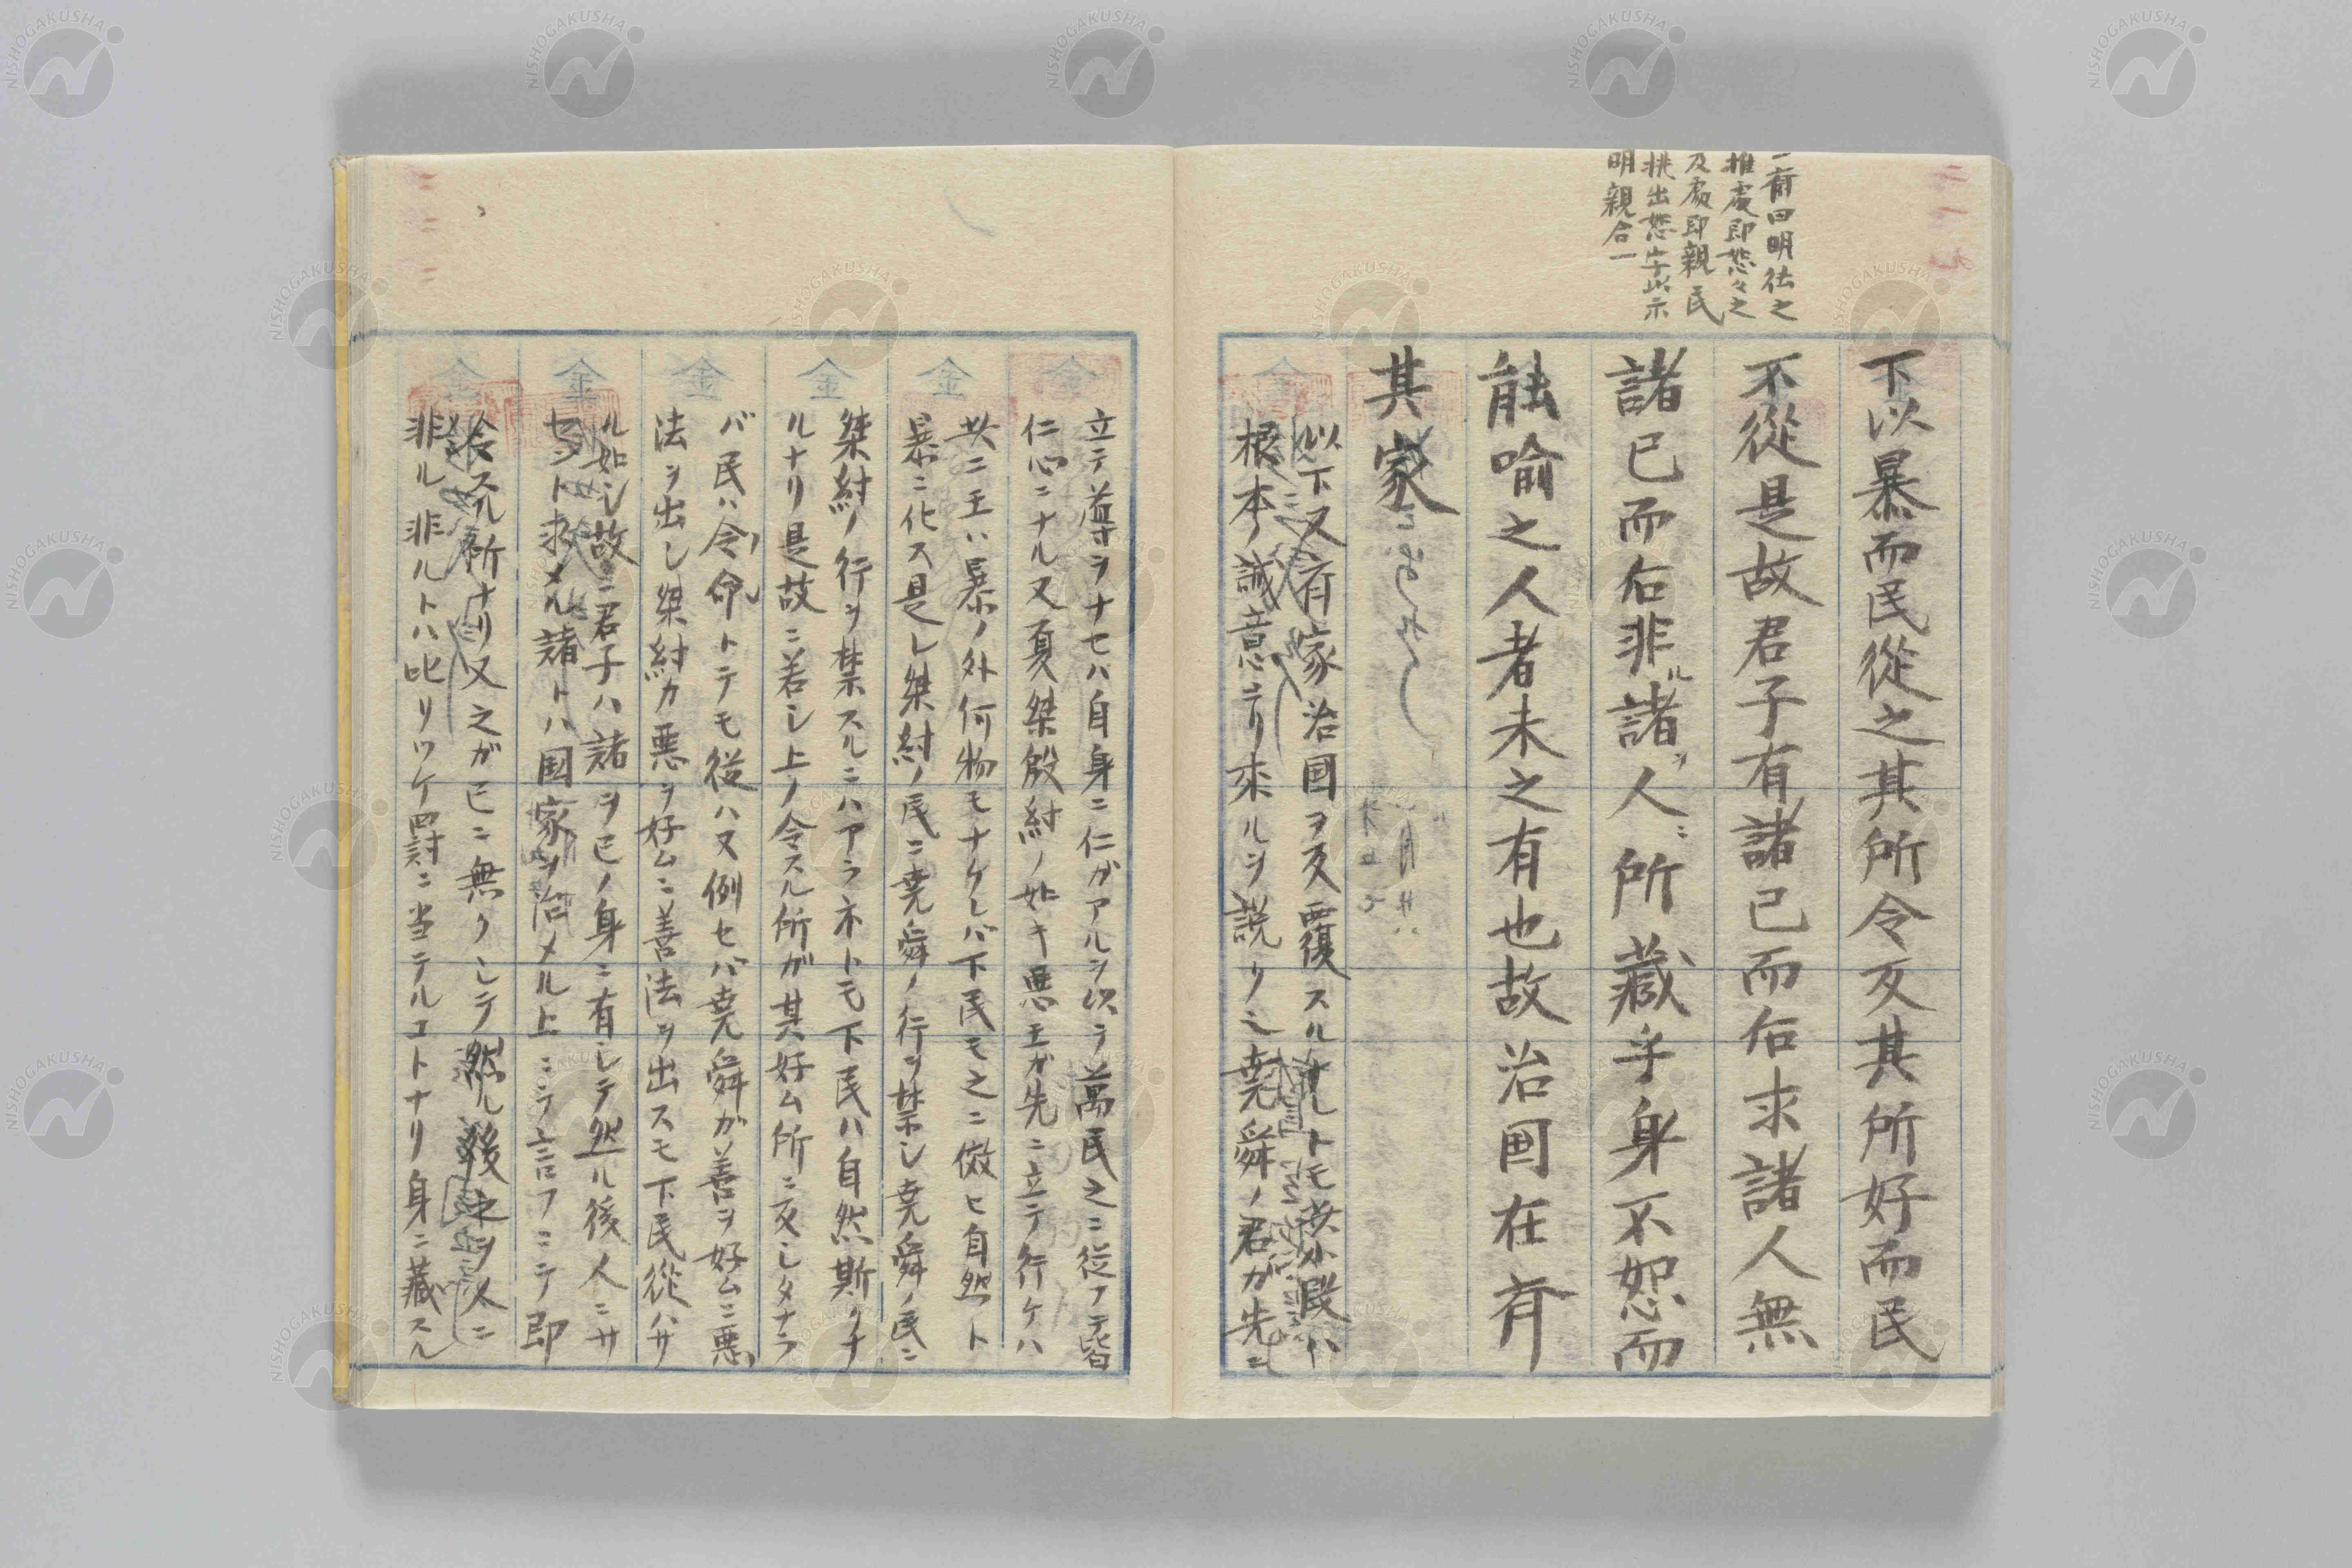 一斉曰明徳之
推處即恕々之
及處即親民
挑出恕字以示
明親合一
下以暴而民從之其所令反其所好而民
不從是故君子有諸己而后求諸人無
諸己而后非ル諸ヲ人ニ所藏乎身不恕而
能喻之人者未之有也故治国在斉
其家
以下又斉家治國ヲ反覆スルナレトモ此小段ハ
根本ノ誠意ヨリ來ルヲ説ケリ堯舜ノ君ガ先ニ
立テ導ヲナセハ自身ニ仁ガアルヲ以テ萬民之ニ從フテ皆
仁心ニナル又夏桀殷紂ノ如キ悪王ガ先ニ立テ行ケハ
此ニ王ハ暴ノ外何物モナケレバ下民モ之ニ傚ヒ自然ト
暴ニ化ス是レ桀紂ノ民ニ堯舜ノ行ヲ禁シ堯舜ノ民ニ
桀紂ノ行ヲ禁スルニハアラネトモ下民ハ自然斯クナ
ルナリ是故ニ若シ上ノ令スル所ガ其好ム所ニ反シタナラ
バ民ハ令命トテモ從ハヌ例セバ堯舜ガ善ヲ好ムニ悪
法ヲ出シ桀紂カ悪ヲ好ムニ善法ヲ出スモ下民從ハサ
ル如シ故ニ君子ハ諸ヲ己ノ身ニ有シテ然ル後人ニサ
セント求メル諸トハ国家ヲ治メル上ニテ言フニテ即
令スル所ナリ又之ガ己ニ無クシテ然ル後之ヲ人ニ
非ル非ルトハ叱リツケ罰ニ当テルコトナリ身ニ藏スル